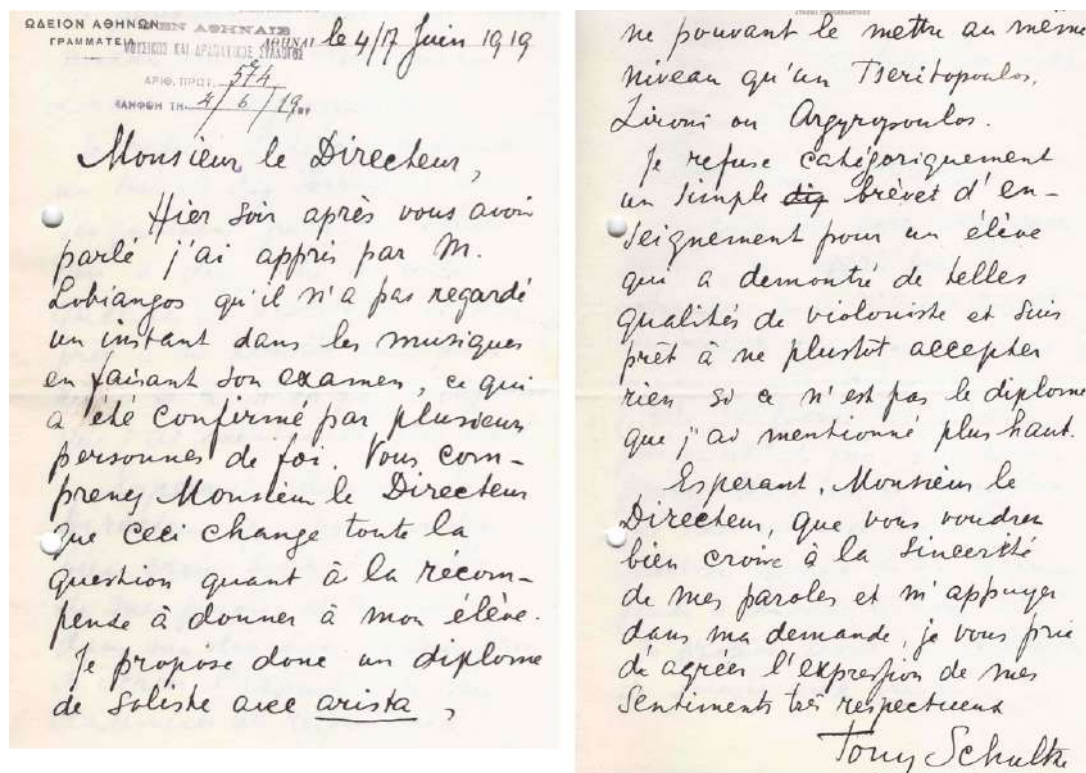 ΩΔΕΙΟΝ ΑΘΗΝΩΝ
ΓΡΑΜΜΑΤΕΙΑ
ΕΝ ΑΘΗΝΑΙΣ
ΜΟΥΣΙΚΟΣ ΚΑΙ ΔΡΑΜΑΤΙΚΟΣ ΣΥΛΛΟΓΟΣ
ΑΘΗΝΑΙ le 4/17 Juin 1919
ΑΡΙΘ. ΠΡΩΤ. 574
ΕΛΗΦΘΗ ΤΗ 4/6/19
Monsieur le Directeur,
Hier soir après vous avoir
parlé j'ai appris par M.
Lobiangos qu'il n'a pas regardé
un instant dans les musiques
en faisant son examen, ce qui
a été confirmé par plusieurs
personnes de foi. Vous com-
prenez Monsieur le Directeur
que ceci change toute la
question quant à la récom-
pense à donner à mon élève.
Je propose donc un diplome
de soliste avec arista,
ne pouvant le mettre au même
niveau qu'un Tseritopoulos,
Lironi ou Argyropoulos.
Je refuse catégoriquement
un simple dip brèvet d'en-
seignement pour un élève
qui a demontré de telles
qualités de violoniste et suis
prêt à ne plustôt accepter
rien si ce n'est pas le diplome
que j'ai mentionné plus haut.
Esperant, Monsieur le
Directeur, que vous voudrez
bien croire à la sincerité
de mes paroles et m'appuyer
dans ma demande, je vous prie
de agréer l'expression de mes
sentiments très respectueux
Tony Schultze